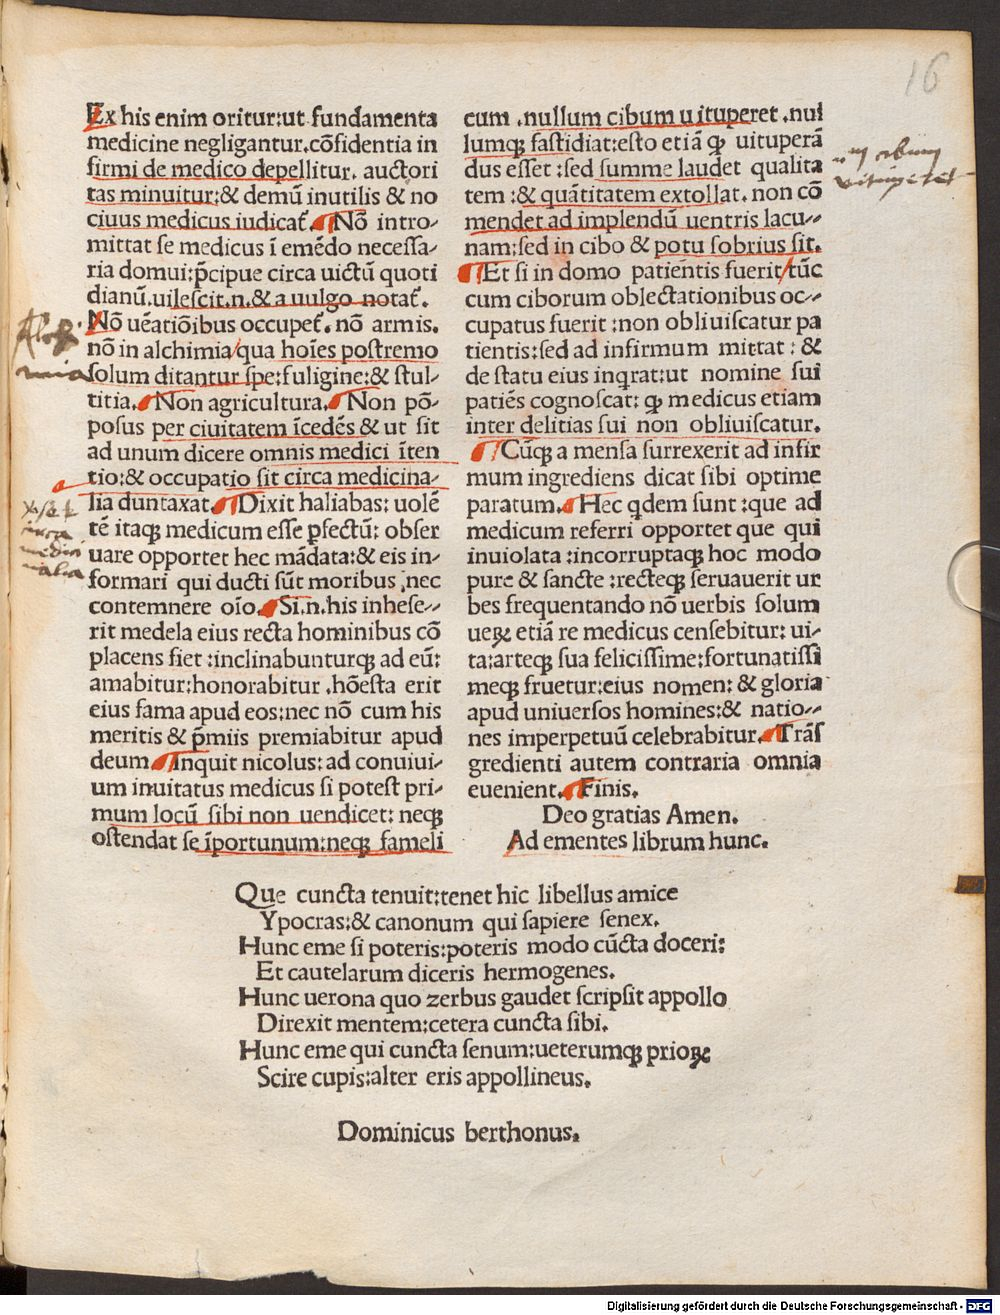 16
Ex his enim oritur:ut fundamenta
medicine negligantur.cōfidentia in
firmi de medico depellitur. auctori
tas minuitur:& demū inutilis & no
ciuus medicus iudicat᷑. Nō intro-
mittat se medicus ī emēdo necessa-
ria domui:p̄cipue circa uictū quoti
dianū.uilescit.n.& a uulgo notat᷑.
Nō uēatiōibus occupet᷑. nō armis.
nō in alchimia/qua hoīes postremo
solum ditantur spe:fuligine:& stul-
titia. Non agricultura. Non pō-
posus per ciuitatem īcedēs & ut sit
ad unum dicere omnis medici īten
tio:& occupatio sit circa medicina-
lia duntaxat. Dixit haliabas: uolē
tē itaqꝫ medicum esse ꝑfectū: obser
uare opportet hec mādata:& eis in-
formari qui ducti sūt moribus ,nec
contemnere oīo. Si.n.his inhese-
rit medela eius recta hominibus cō
placens fiet :inclinabunturqꝫ ad eū:
amabitur:honorabitur .hōesta erit
eius fama apud eos:nec nō cum his
meritis & p̄miis premiabitur apud
deum. Inquit nicolus: ad conuiui-
um inuitatus medicus si potest pri-
mum locū sibi non uendicet: neqꝫ
ostendat se īportunum:neqꝫ fameli
cum .nullum cibum uituperet .nul
lumqꝫ fastidiat:esto etiā ꝙ uituperā
dus esset :sed summe laudet qualita
tem :& quātitatem extollat. non cō
mendet ad implendū uentris lacu-
nam:sed in cibo & potu sobrius sit.
Et si in domo patientis fuerit/tūc
cum ciborum oblectationibus oc-
cupatus fuerit :non obliuiscatur pa
tientis:sed ad infirmum mittat : &
de statu eius inq̇rat:ut nomine sui
patiēs cognoscat: ꝙ medicus etiam
inter delitias sui non obliuiscatur.
Cūqꝫ a mensa surrexerit ad infir
mum ingrediens dicat sibi optime
paratum. Hec q̇dem sunt :que ad
medicum referri opportet que qui
inuiolata :incorruptaqꝫ hoc modo
pure & sancte :recteqꝫ seruauerit ur
bes frequentando nō uerbis solum
ueꝝ etiā re medicus censebitur: ui-
ta:arteqꝫ sua felicissime:fortunatissi
meqꝫ fruetur:eius nomen: & gloria
apud uniuersos homines:& natio-
nes imperpetuū celebrabitur. Trāf
gredienti autem contraria omnia
euenient. Finis.
Deo gratias Amen.
Ad ementes librum hunc.
Que cuncta tenuit:tenet hic libellus amice
Ypocras:& canonum qui sapiere senex.
Hunc eme si poteris:poteris modo cūcta doceri:
Et cautelarum diceris hermogenes.
Hunc uerona quo zerbus gaudet scripsit appollo
Direxit mentem:cetera cuncta sibi.
Hunc eme qui cuncta senum:ueterumqꝫ prioꝝ
Scire cupis:alter eris appollineus.
Dominicus berthonus.
Digitalisierung gefördert durch die Deutsche Forschungsgemeinschaft - DFG